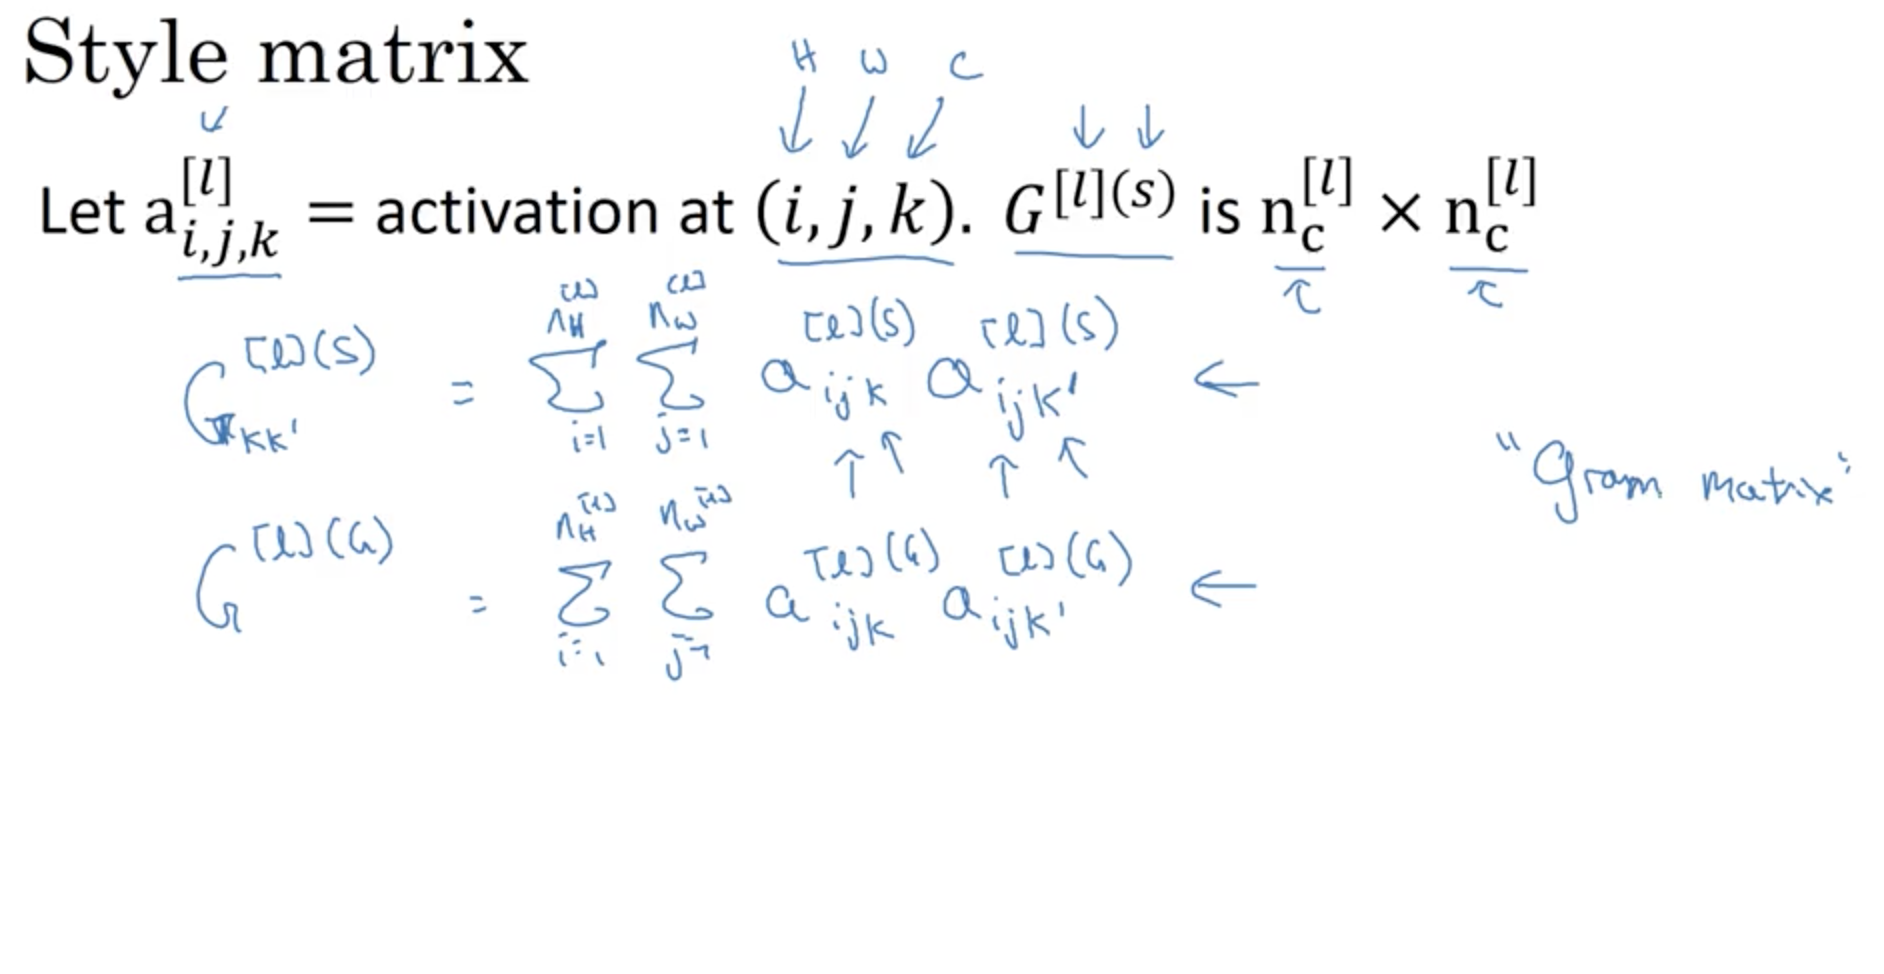 Style matrix
H W C
Let a^{[l]}_{i,j,k} = activation at (i, j, k). G^{[l](s)} is n_c^{[l]} × n_c^{[l]}
G_{kk'}^{[l](S)} = \sum_{i=1}^{n_H^{[l]}} \sum_{j=1}^{n_W^{[l]}} a_{ijk}^{[l](S)} a_{ijk'}^{[l](S)} ←
"Gram matrix"
G^{[l](G)} = \sum_{i=1}^{n_H^{[l]}} \sum_{j=1}^{n_W^{[l]}} a_{ijk}^{[l](G)} a_{ijk'}^{[l](G)} ←